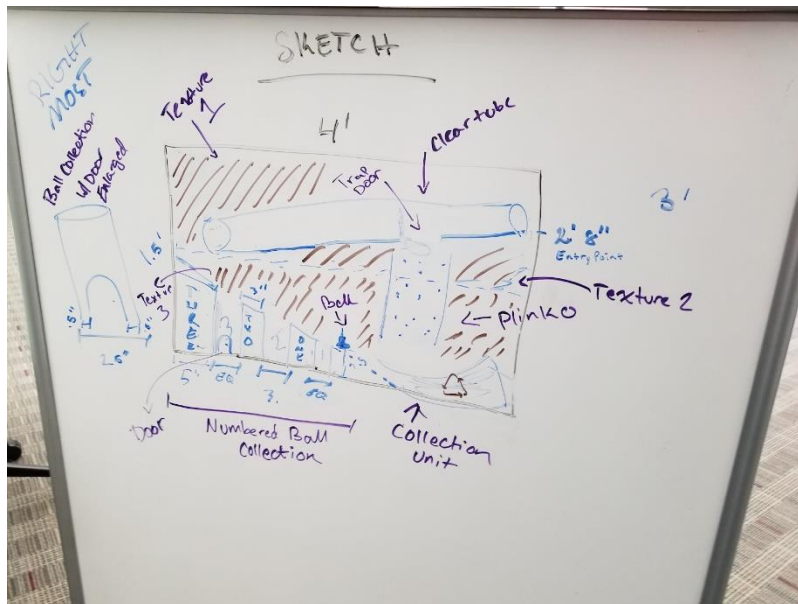 SKETCH
RIGHT
MOST
Ball Collection
w/ Door
Enlarged
Texture
1
4'
Clear tube
Trap
Door
3'
2' 8"
Entry Point
1.5'
Texture
3
3"
Ball
Texture 2
Plinko
THREE
TWO
ONE
.5"
2.5"
5'
EQ
3.
EQ
Door
Numbered Ball
Collection
Collection
Unit